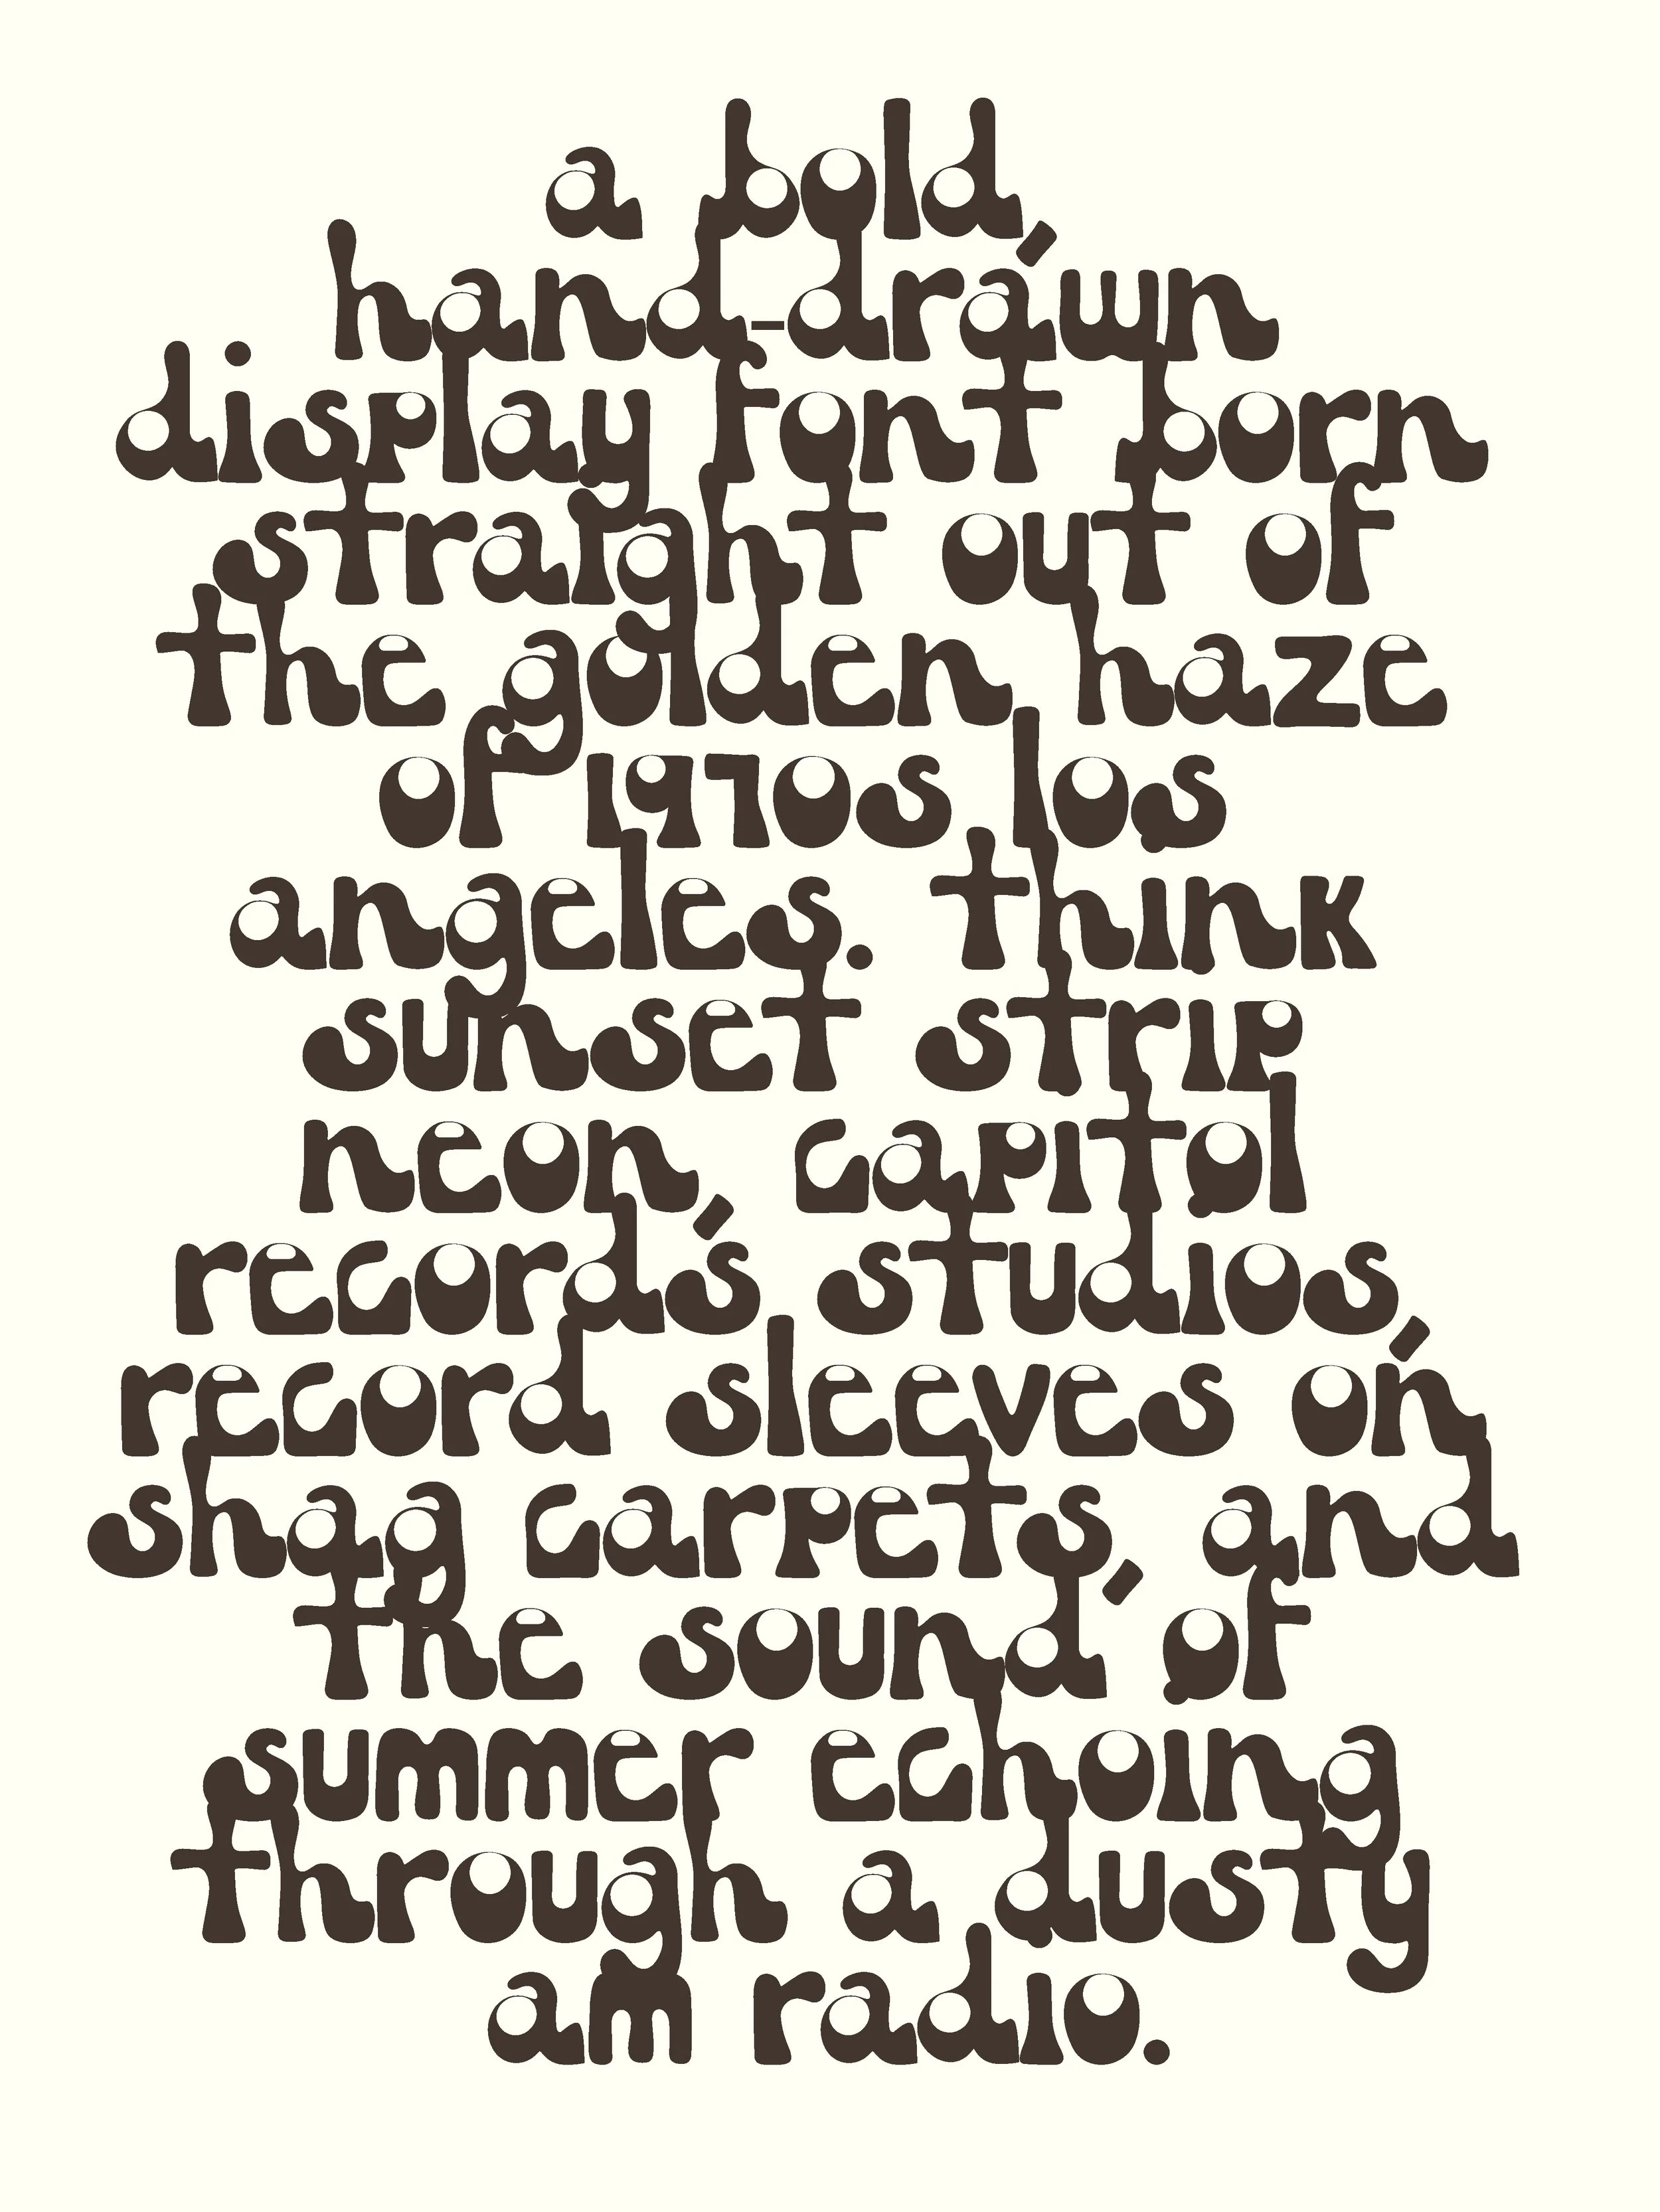 a bold,
hand-drawn
display font born
straight out of
the golden haze
of 1970s los
angeles. think
sunset strip
neon, capitol
records studios,
record sleeves on
shag carpets, and
the sound of
summer echoing
through a dusty
am radio.